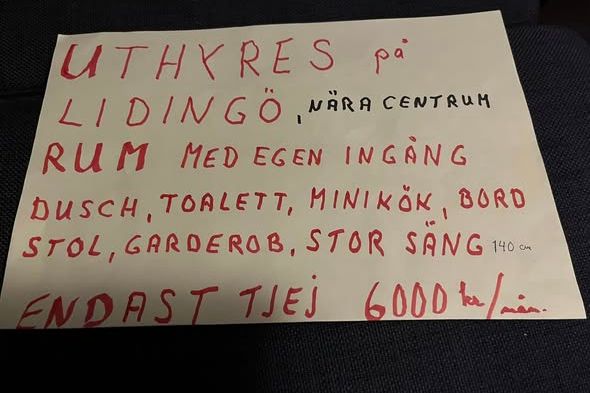 UTHYRES på
LIDINGÖ, NÄRA CENTRUM
RUM MED EGEN INGÅNG
DUSCH, TOALETT, MINIKÖK, BORD
STOL, GARDEROB, STOR SÄNG 140 cm
ENDAST TJEJ 6000 kr/mån.